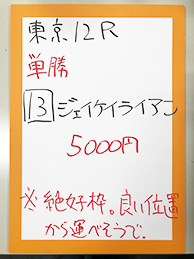 東京12R
単勝
13 ジェイケイライアン
5000円
※絶好枠。良い位置
から運べそうで。